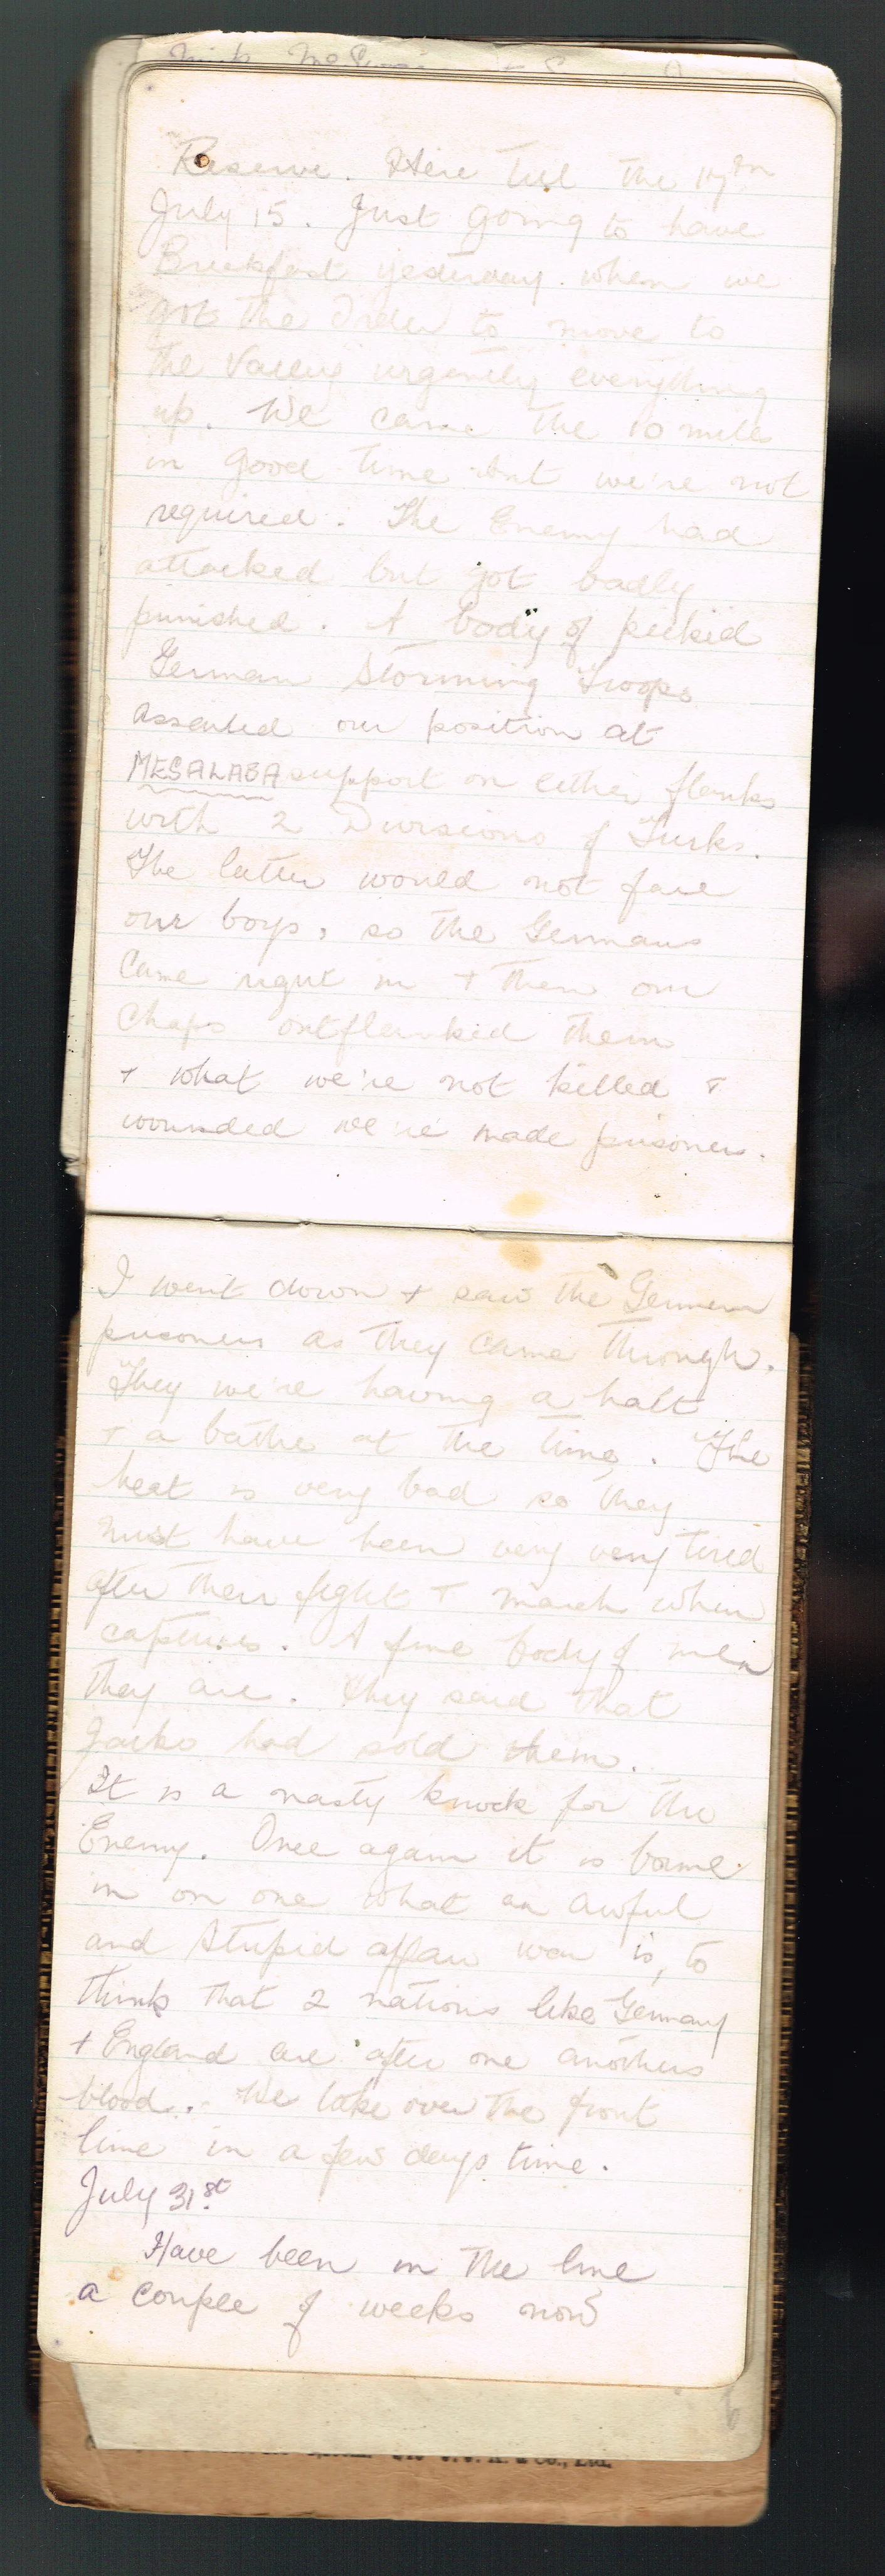 Reserve. Here till the 17th
July 15. Just going to have
Breekfast yesterday. when we
got the Order to move to
the Valley urgently everything
up. We came the 10 miles
in good time but we're not
required. The Enemy had
attacked but got badly
punished. A body of picked
German Storming Troops
Assaulted our position at
MESALABA support on either flanks
with 2 Divisions of Turks.
The latter would not face
our boys, so the Germans
Came right in + then our
Chaps outflanked them
+ what we're not killed +
wounded we're made prisoners.
I went down + saw the German
prisoners as they came through.
They we're having a halt
+ a bathe at the time. The
heat is very bad so they
must have been very very tired
after their fight + march when
captured. A fine body of men
they are. They said that
Jacko had sold them.
It is a nasty knock for the
Enemy. Once again it is borne
in on one what an awful
and stupid affair war is, to
think that 2 nations like Germany
+ England are after one anothers
blood. We take over the front
line in a few days time.
July 31st
Have been in the line
a couple of weeks now